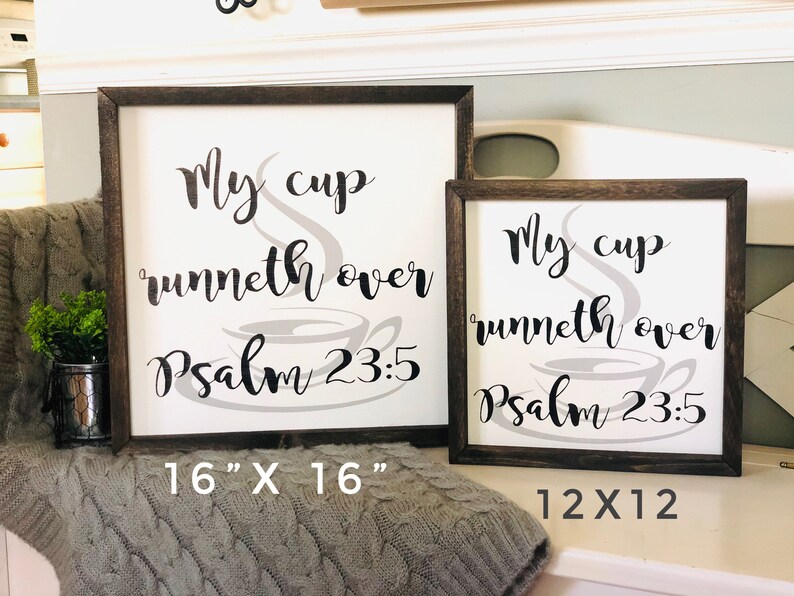 My cup
runneth over
Psalm 23:5
My cup
runneth over
Psalm 23:5
16” X 16”
12X12